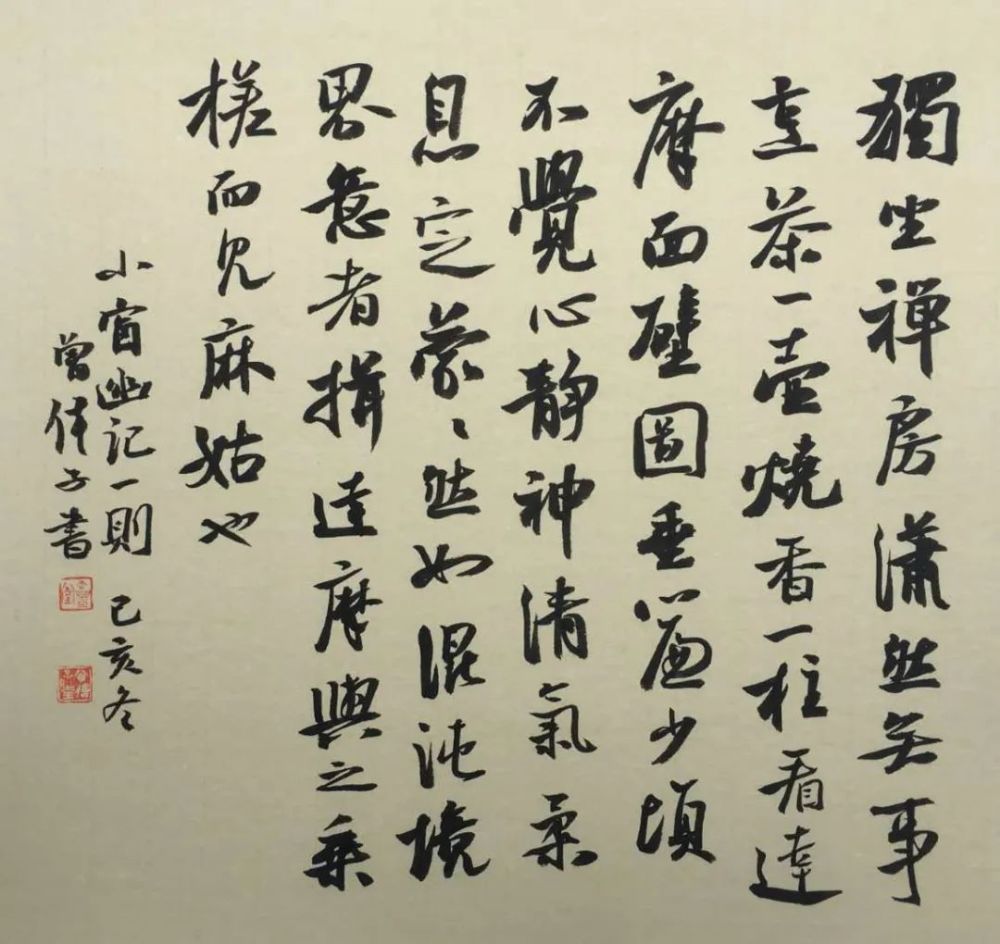 獨坐禪房瀟然無事
烹茶一壺燒香一柱看達
摩面壁圖垂簾少頃
不覺心靜神清氣柔
息定蒙〻然如混沌境
界意者揖達摩與之乘
槎而見麻姑也
小窗幽記一則 己亥冬
曾倖子書